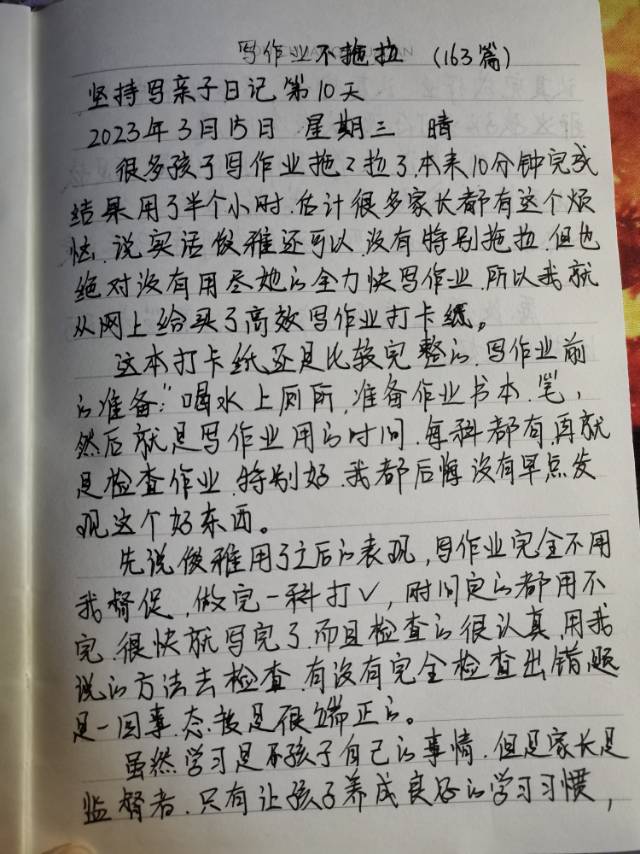 写作业不拖拉 (163篇)
坚持写亲子日记第10天
2023年3月15日 星期三 晴
很多孩子写作业拖拖拉了.本来10分钟完成
结果用了半个小时.估计很多家长都有这个烦
恼.说实话俊雅还可以.没有特别拖拉.但也
绝对没有用尽她的全力快写作业.所以我就
从网上给买了高效写作业打卡纸。
这本打卡纸还是比较完整的.写作业前
的准备:"喝水上厕所.准备作业书本.笔,
然后就是写作业用的时间.每科都有.再就
是检查作业.特别好.我都后悔没有早点发
现这个好东西。
先说俊雅用了之后的表现,写作业完全不用
我督促,做完一科打✓,时间定的都用不
完.很快就写完了.而且检查的很认真.用我
说的方法去检查.有没有完全检查出错题
是一回事.态度是很端正的。
虽然学习是不孩子自己的事情.但是家长是
监督者.只有让孩子养成良好的学习习惯,